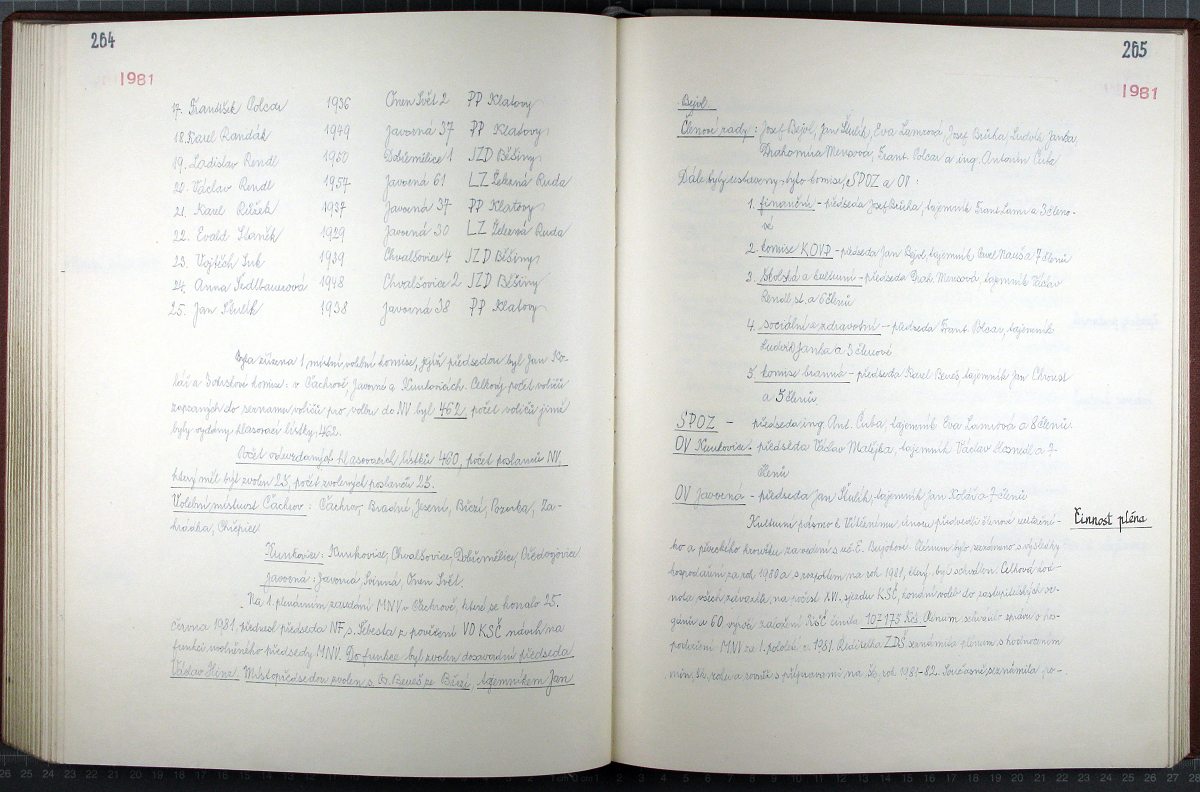 264
1981
17. František Polcar 1936 Onen Svět 2 PP Klatovy
18. Karel Randák 1949 Javorná 37 PP Klatovy
19. Ladislav Rendl 1950 Dobřemělice 1 JZD Běšiny
20. Václav Rendl 1957 Javorná 61 LZ Železná Ruda
21. Karel Růžek 1937 Javorná 37 PP Klatovy
22. Evald Staněk 1929 Javorná 30 LZ Železná Ruda
23. Vojtěch Suk 1939 Chvalšovice 4 JZD Běšiny
24. Anna Sedlbauerová 1948 Chvalšovice 2 JZD Běšiny
25. Jan Šlulík 1938 Javorná 38 PP Klatovy
Byla zřízena 1 místní volební komise, jejíž předsedou byl Jan Ko-
lář a 3 okrskové komise: v Čachrově, Javorné a Kunkovicích. Celkový počet voličů
zapsaných do seznamu voličů pro volbu do NV byl 462, počet voličů jimž
byly vydány hlasovací lístky, 462.
Počet odevzdaných hlasovacích lístků 460, počet poslanců NV,
který měl být zvolen 25, počet zvolených poslanců 25.
Volební místnost Čachrov: Čachrov, Bradné, Jesení, Březí, Za-
hrádka, Chřepice
Kunkovice: Kunkovice, Chvalšovice, Dobřemělice, Předvojovice
Javorná: Javorná, Svinná, Onen Svět.
Na 1. plenárním zasedání MNV v Čachrově, které se konalo 25.
června 1981 přednesl předseda NF, s. Šebesta z pověření VO KSČ návrh na
funkci uvolněného předsedy MNV. Do funkce byl zvolen dosavadní předseda
Václav Heinz. Místopředsedou zvolen s. Beneš ze Březí, tajemníkem Jan
265
1981
Bejvl.
Členové rady: Josef Bejvl, Jan Šlulík, Eva Lamrová, Josef Brůha, Ludvík Janka,
Drahomíra Mensová, Frant. Polcar a ing. Antonín Čuba
Dále byly sestaveny komise, SPOZ a OV:
1. finanční - předseda Josef Brůha, tajemník Frant. Lamr a 3 členo-
vé
2. komise KOVP - předseda Jan Bejvl, tajemník Pavel Kauš a 7 členů
3. školská a kulturní - předseda Drah. Mensová, tajemník Václav
Rendl st. a 6 členů
4. sociální a zdravotní - předseda Frant. Polcar, tajemník
Ludvík Janka a 3 členové
5. komise branná - předseda Karel Beneš, tajemník Jan Chroust
a 5 členů
SPOZ - předseda ing. Ant. Čuba, tajemník Eva Lamrová a 8 členů
OV Kunkovice: předseda Václav Matějka, tajemník Václav Hosnedl a 7
členů
OV Javorna - předseda Jan Šlulík, tajemník Jan Kolář a 7 členů
Činnost pléna
Kulturní pásmo k Vítěznému únoru předvedli členové recitační-
ho a pěveckého kroužku za vedení s. uč. E. Plénum bylo seznámeno s výsledky
hospodaření za rok 1980 a s rozpočtem na rok 1981, který byl schválen. Celková hod-
nota všech závazků, na počest XVI. sjezdu KSČ, konání voleb do zastupitelských or-
gánů a 60. výročí založení KSČ činila 107 173 Kčs. Plénum schválilo zprávu o hos-
podaření MNV za 1. pololetí r. 1981. Ředitelka ZDŠ seznámila plénum s hodnocením
min. šk. roku a rovněž s přípravami na šk. rok 1981-82. Současně seznámila po-